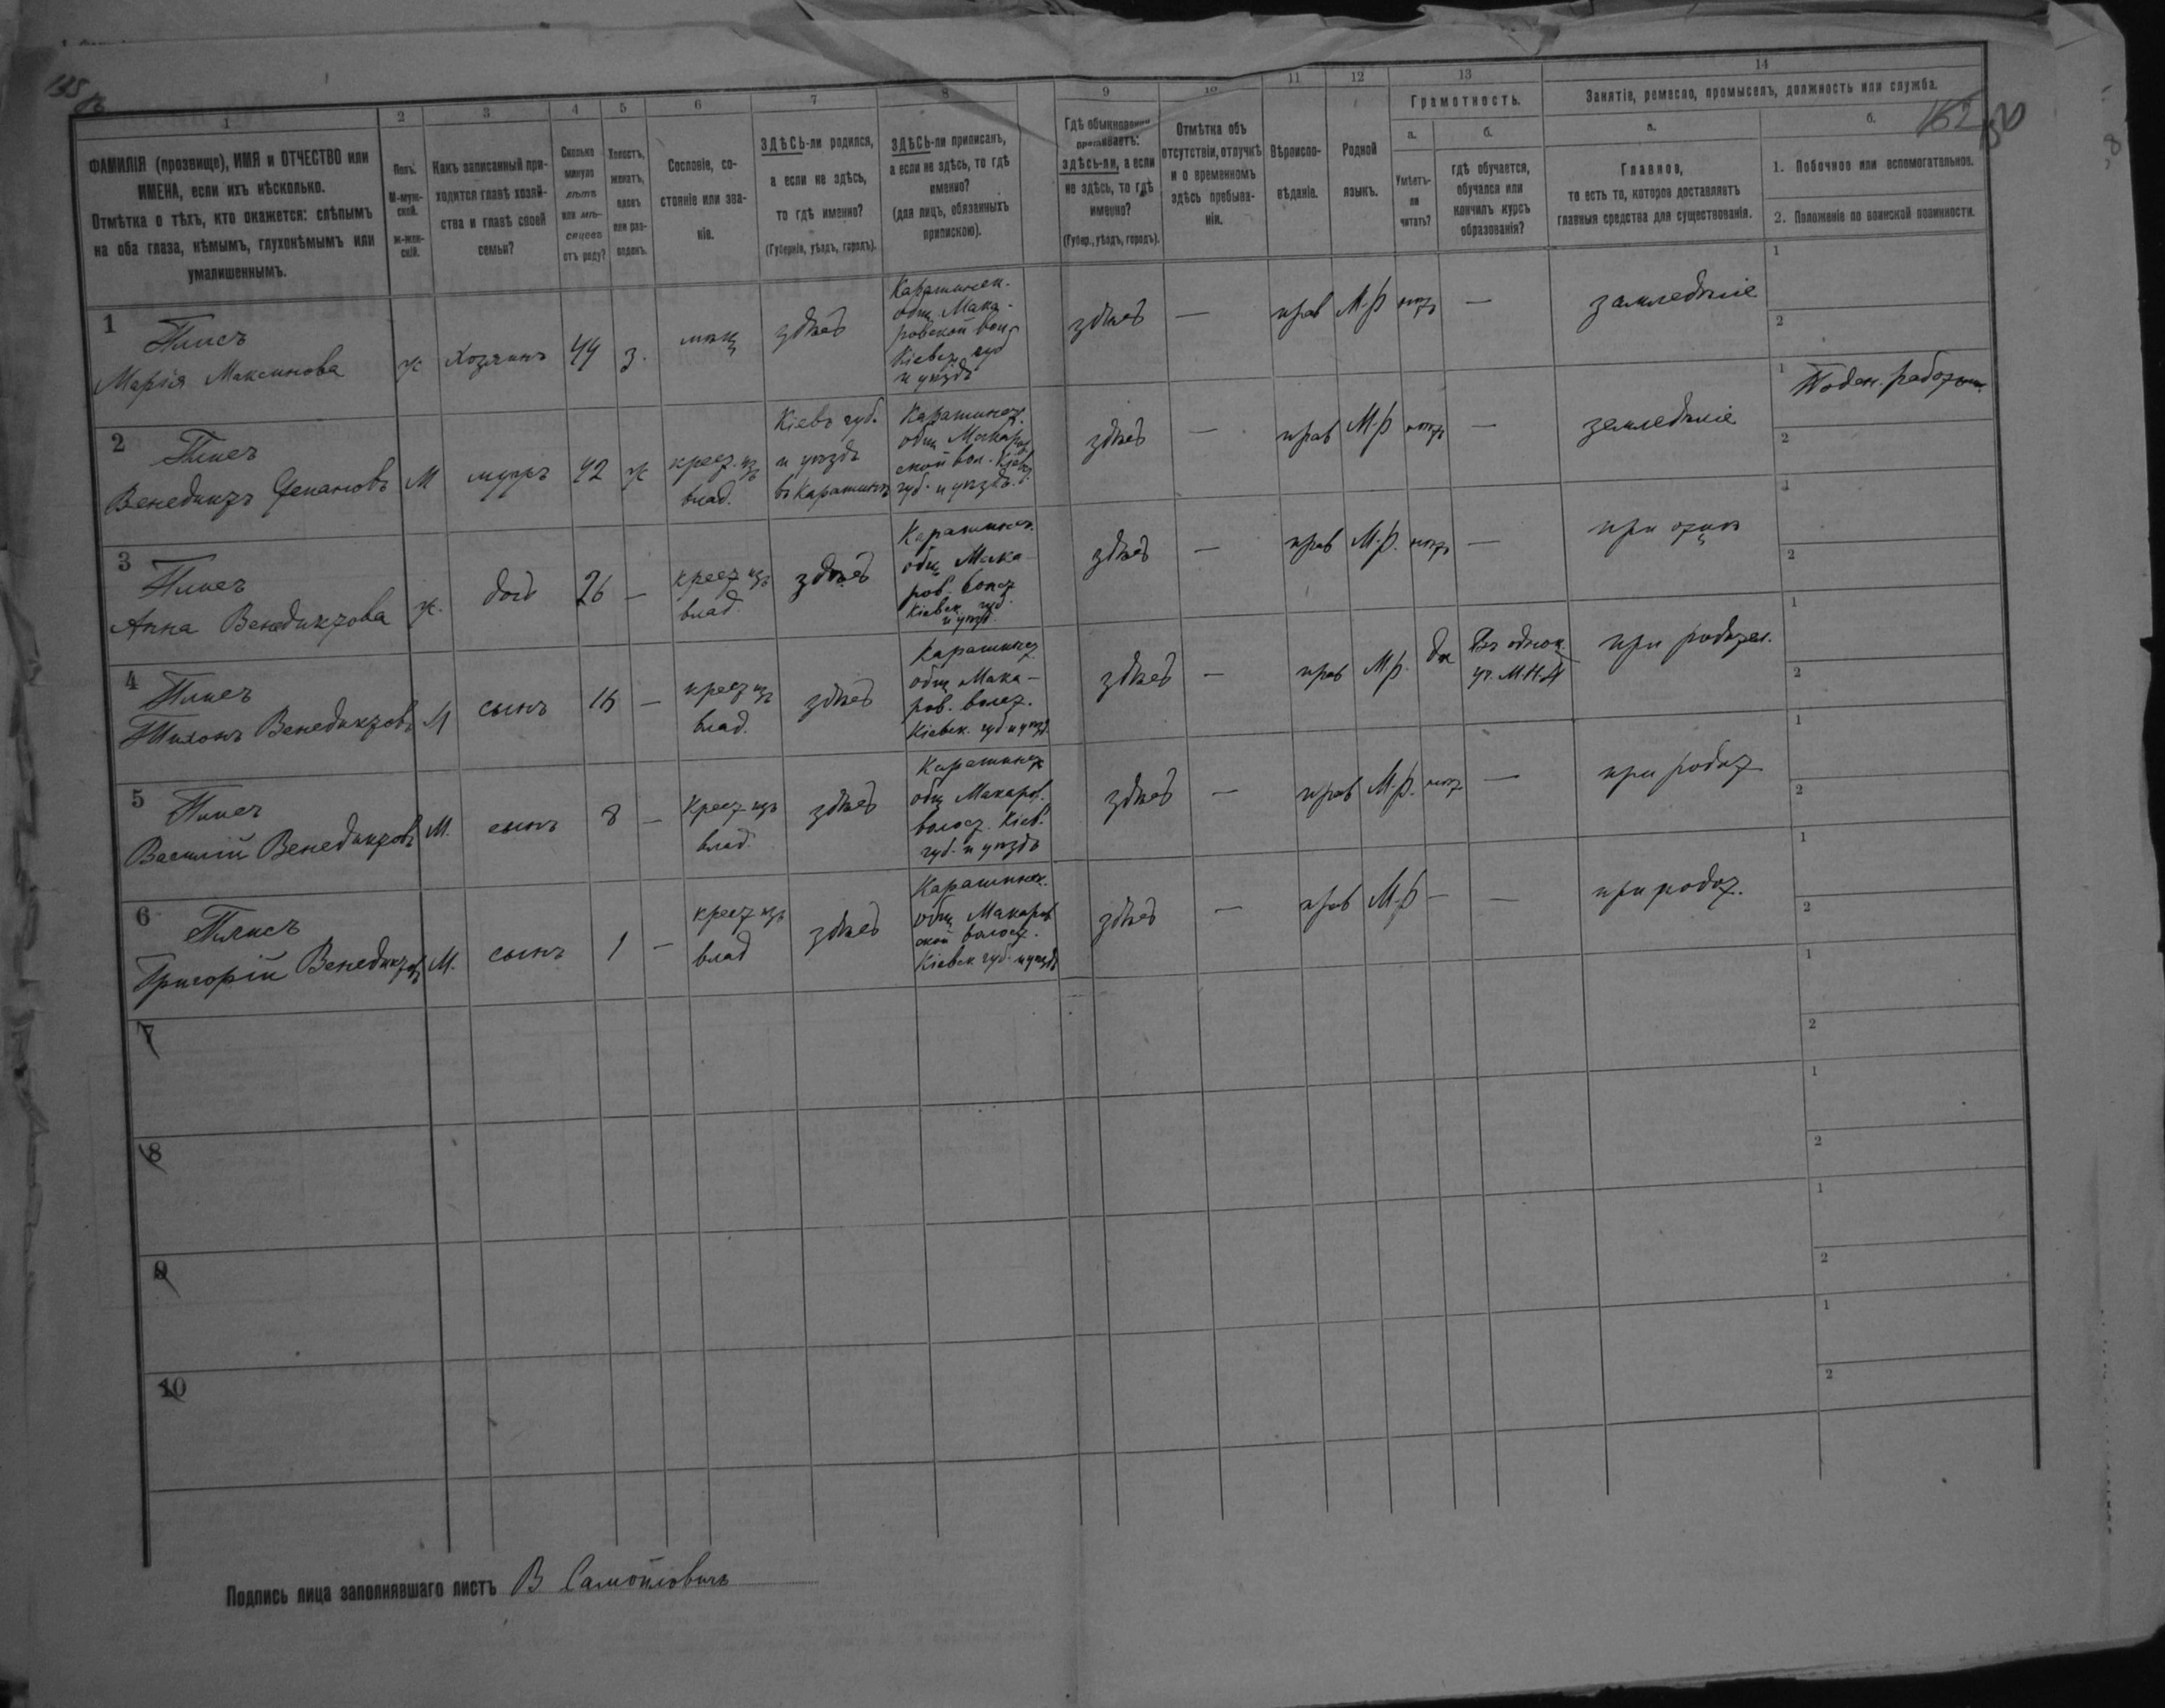 1 2 3 4 5 6 7 8 9 10 11 12 13 14
ФАМИЛІЯ (прозвище), ИМЯ и ОТЧЕСТВО или
ИМЕНА, если ихъ нѣсколько.
Отмѣтка о тѣхъ, кто окажется: слѣпымъ
на оба глаза, нѣмымъ, глухонѣмымъ или
умалишеннымъ.
Полъ.
М-муж-
ской.
Ж-жен-
скій.
Какъ записанный при-
ходится главѣ хозяй-
ства и главѣ своей
семьи?
Сколько
минуло
лѣтъ
или мѣ-
сяцевъ
отъ роду?
Холостъ,
женатъ,
вдовъ
или раз-
веденъ.
Сословіе, со-
стояніе или зва-
ніе.
ЗДѢСЬ-ли родился,
а если не здѣсь,
то гдѣ именно?
(Губернія, уѣздъ, городъ).
ЗДѢСЬ-ли приписанъ,
а если не здѣсь, то гдѣ
именно?
(для лицъ, обязанныхъ
припискою).
Гдѣ обыкновенно
проживаетъ:
здѣсь-ли, а если
не здѣсь, то гдѣ
именно?
(Губер., уѣздъ, городъ).
Отмѣтка объ
отсутствіи, отлучкѣ
и о временномъ
здѣсь пребыва-
ніи.
Вѣроиспо-
вѣданіе.
Родной
языкъ.
Грамотность.
а.
Умѣетъ-
ли
читать?
б.
гдѣ обучается,
обучался или
кончилъ курсъ
образованія?
Занятіе, ремесло, промыселъ, должность или служба.
а.
Главное,
то есть то, которое доставляетъ
главныя средства для существованія.
б.
1. Побочное или вспомогательное.
2. Положеніе по воинской повинности.
1
Марія Максимова ж хозяинъ 44 з. мѣщ здѣсь
Карашинск.
общ Мака-
ровской вол
Кіевск. губ
и уѣзда
здѣсь — прав М-р нѣтъ — земледѣліе
1
2
2
Венедиктъ Степановъ М мужъ 42 ж крест. изъ
влад.
Кіевъ губ.
и уѣзда
въ Карашинѣ
Карашинск.
общ Макаров
ской вол. Кіевс
губ. и уѣзда.
здѣсь — прав М-р нѣтъ — земледѣліе
1 Поден. работн.
2
3
Анна Венедиктова ж. дочь 26 — крест изъ
влад.
здѣсь
Карашинск.
общ Мака-
ров. волост
Кіевск. губ.
и уѣзд.
здѣсь — прав М-р. нѣтъ — при отцѣ
1
2
4
Тихонъ Венедиктовъ М сынъ 16 — крест изъ
влад.
здѣсь
Карашинск
общ Мака-
ров. волост.
Кіевск. губ и уѣзд.
здѣсь — прав М-р. да Въ однок.
уч. М.Н.П при родител.
1
2
5
Василій Венедиктовъ М. сынъ 8 — крест изъ
влад.
здѣсь
Карашинск
общ Макаров.
волост. Кіев.
губ. и уѣзда
здѣсь — прав М-р. нѣт — при родит
1
2
6
Григорій Венедиктовъ М. сынъ 1 — крест изъ
влад
здѣсь
Карашинск.
общ Макаров
ской волост.
Кіевск губ. и уѣзда
здѣсь — прав М-р — — при родит.
1
2
7
1
2
8
1
2
9
1
2
10
1
2
Подпись лица заполнявшаго листъ